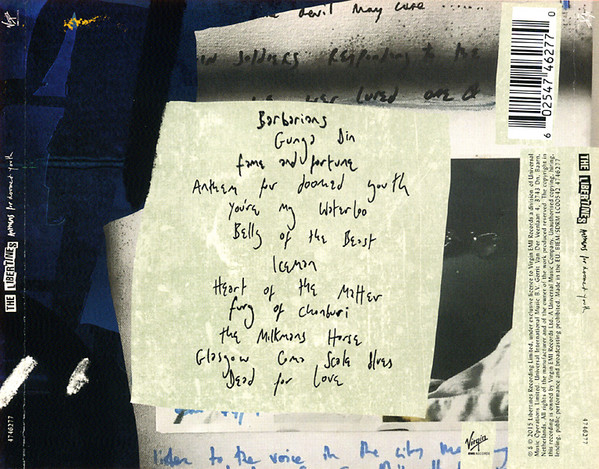 the Devil May care ......
Soldiers Responding to the
loved one &
Barbarians
Gunga Din
fame and fortune
Anthem for doomed youth
You're My Waterloo
Belly of the Beast
Iceman
Heart of the Matter
fury of Chonburi
the Milkmans Horse
Glasgow Coma Scale Blues
Dead for Love
listen to the voice in the city
Virgin
EMI RECORDS
THE LIBERTINES
Anthems for doomed youth
4746277
Virgin
6 02547 46277 0
THE LIBERTINES
Anthems for doomed youth
4746277
℗ © 2015 Libertines Recording Limited, under exclusive licence to Virgin EMI Records a division of Universal
Music Operations Limited. Universal International Music B.V. Gerrit Van Der Veenlaan 4, 3743 Dn, Baarn,
Netherlands. All rights of the manufacturer and of the owner of the work produced reserved. The copyright in
this recording is owned by Virgin EMI Records Ltd. A Universal Music Company. Unauthorised copying, hiring,
lending, public performance and broadcasting prohibited. Made in the EU. BIEM/SDRM LC00542 4746277